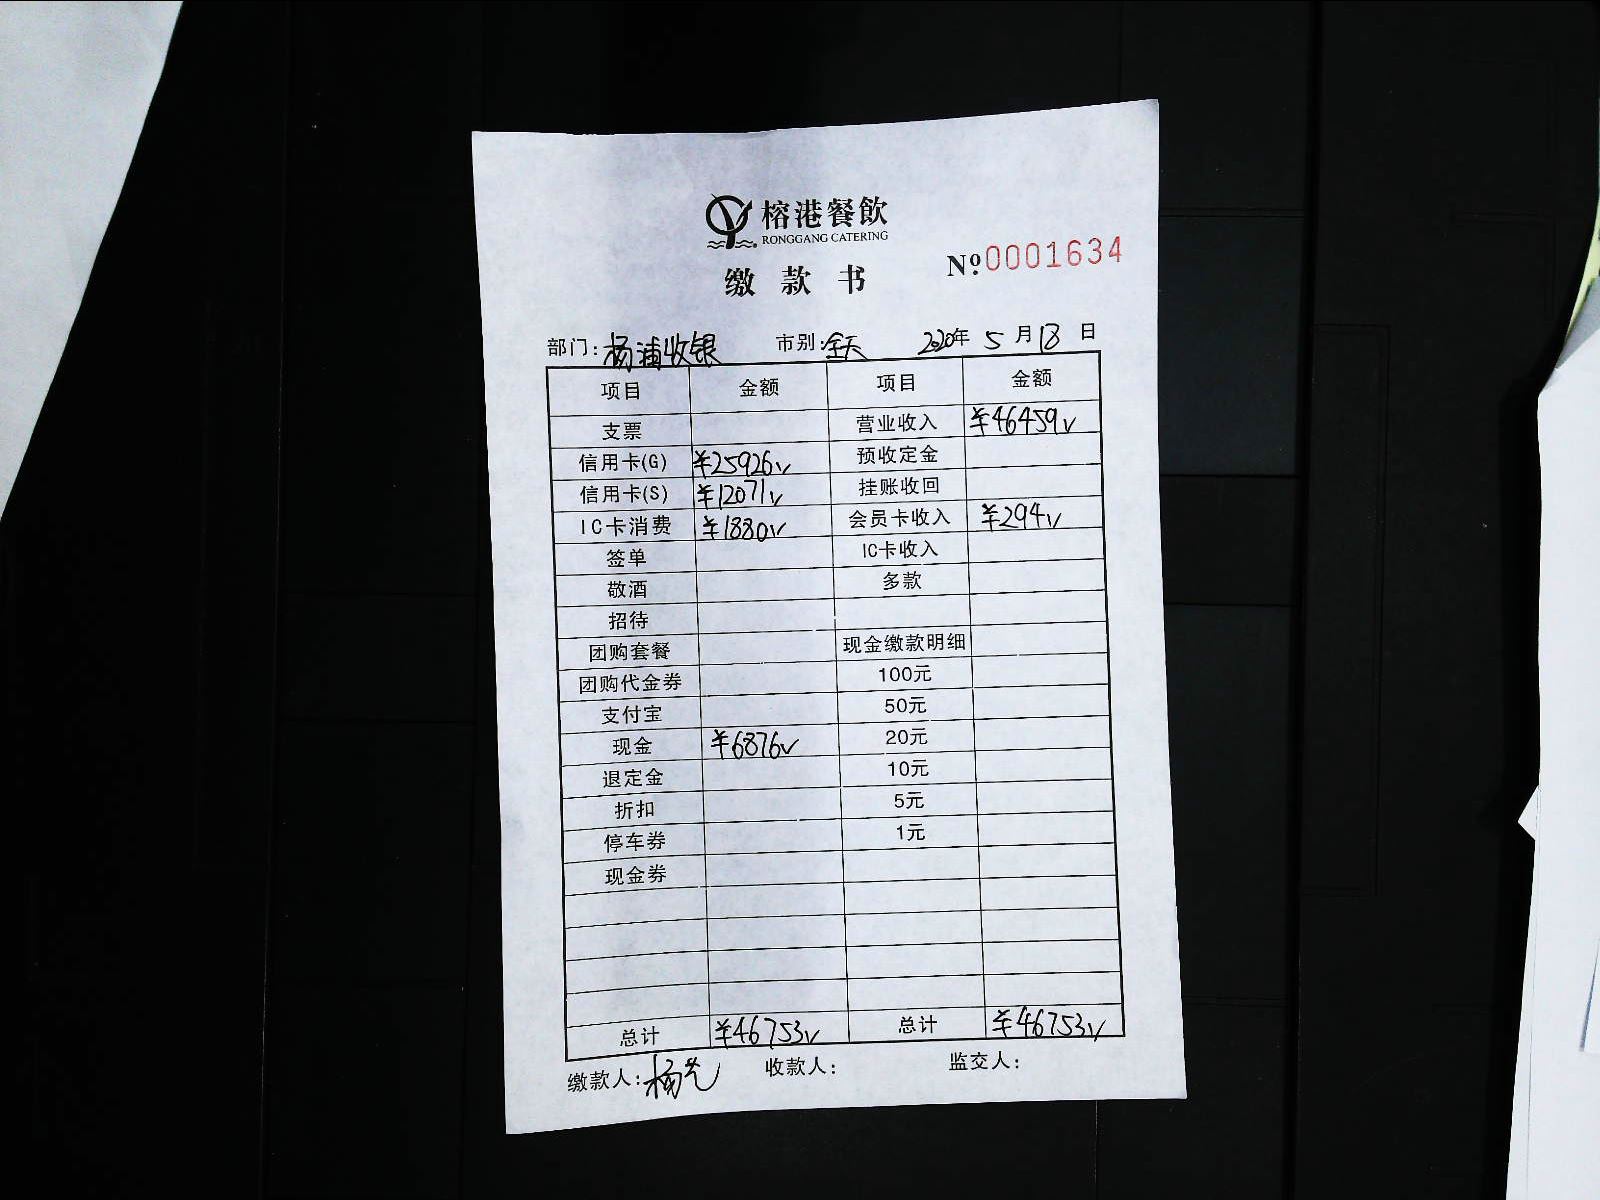 榕港餐飲
RONGGANG CATERING
缴款书
Nº:0001634
部门:杨浦收银 市别:全天 2020年5月18日
项目 金额 项目 金额
支票 营业收入 ¥46459√
信用卡(G) ¥25926√ 预收定金
信用卡(S) ¥12071√ 挂账收回
IC卡消费 ¥1880√ 会员卡收入 ¥294√
签单 IC卡收入
敬酒 多款
招待
团购套餐 现金缴款明细
团购代金券 100元
支付宝 50元
现金 ¥6876√ 20元
退定金 10元
折扣 5元
停车券 1元
现金券
总计 ¥46753√ 总计 ¥46753√
缴款人:杨 收款人: 监交人: